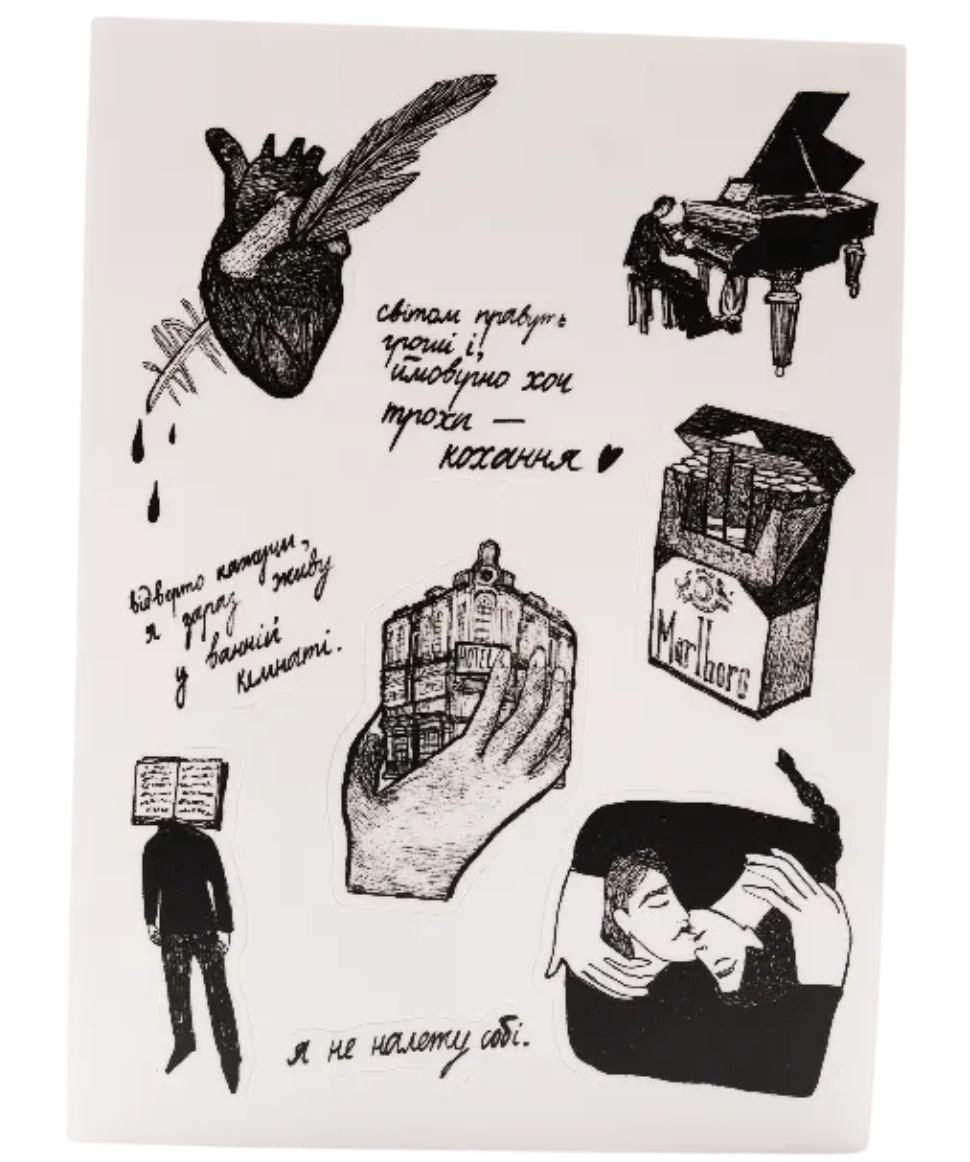 світом правлять
гроші і,
ймовірно хоч
трохи —
кохання
відверто кажучи,
я зараз живу
у ванній
кімнаті.
HOTEL
Marlboro
я не належу собі.